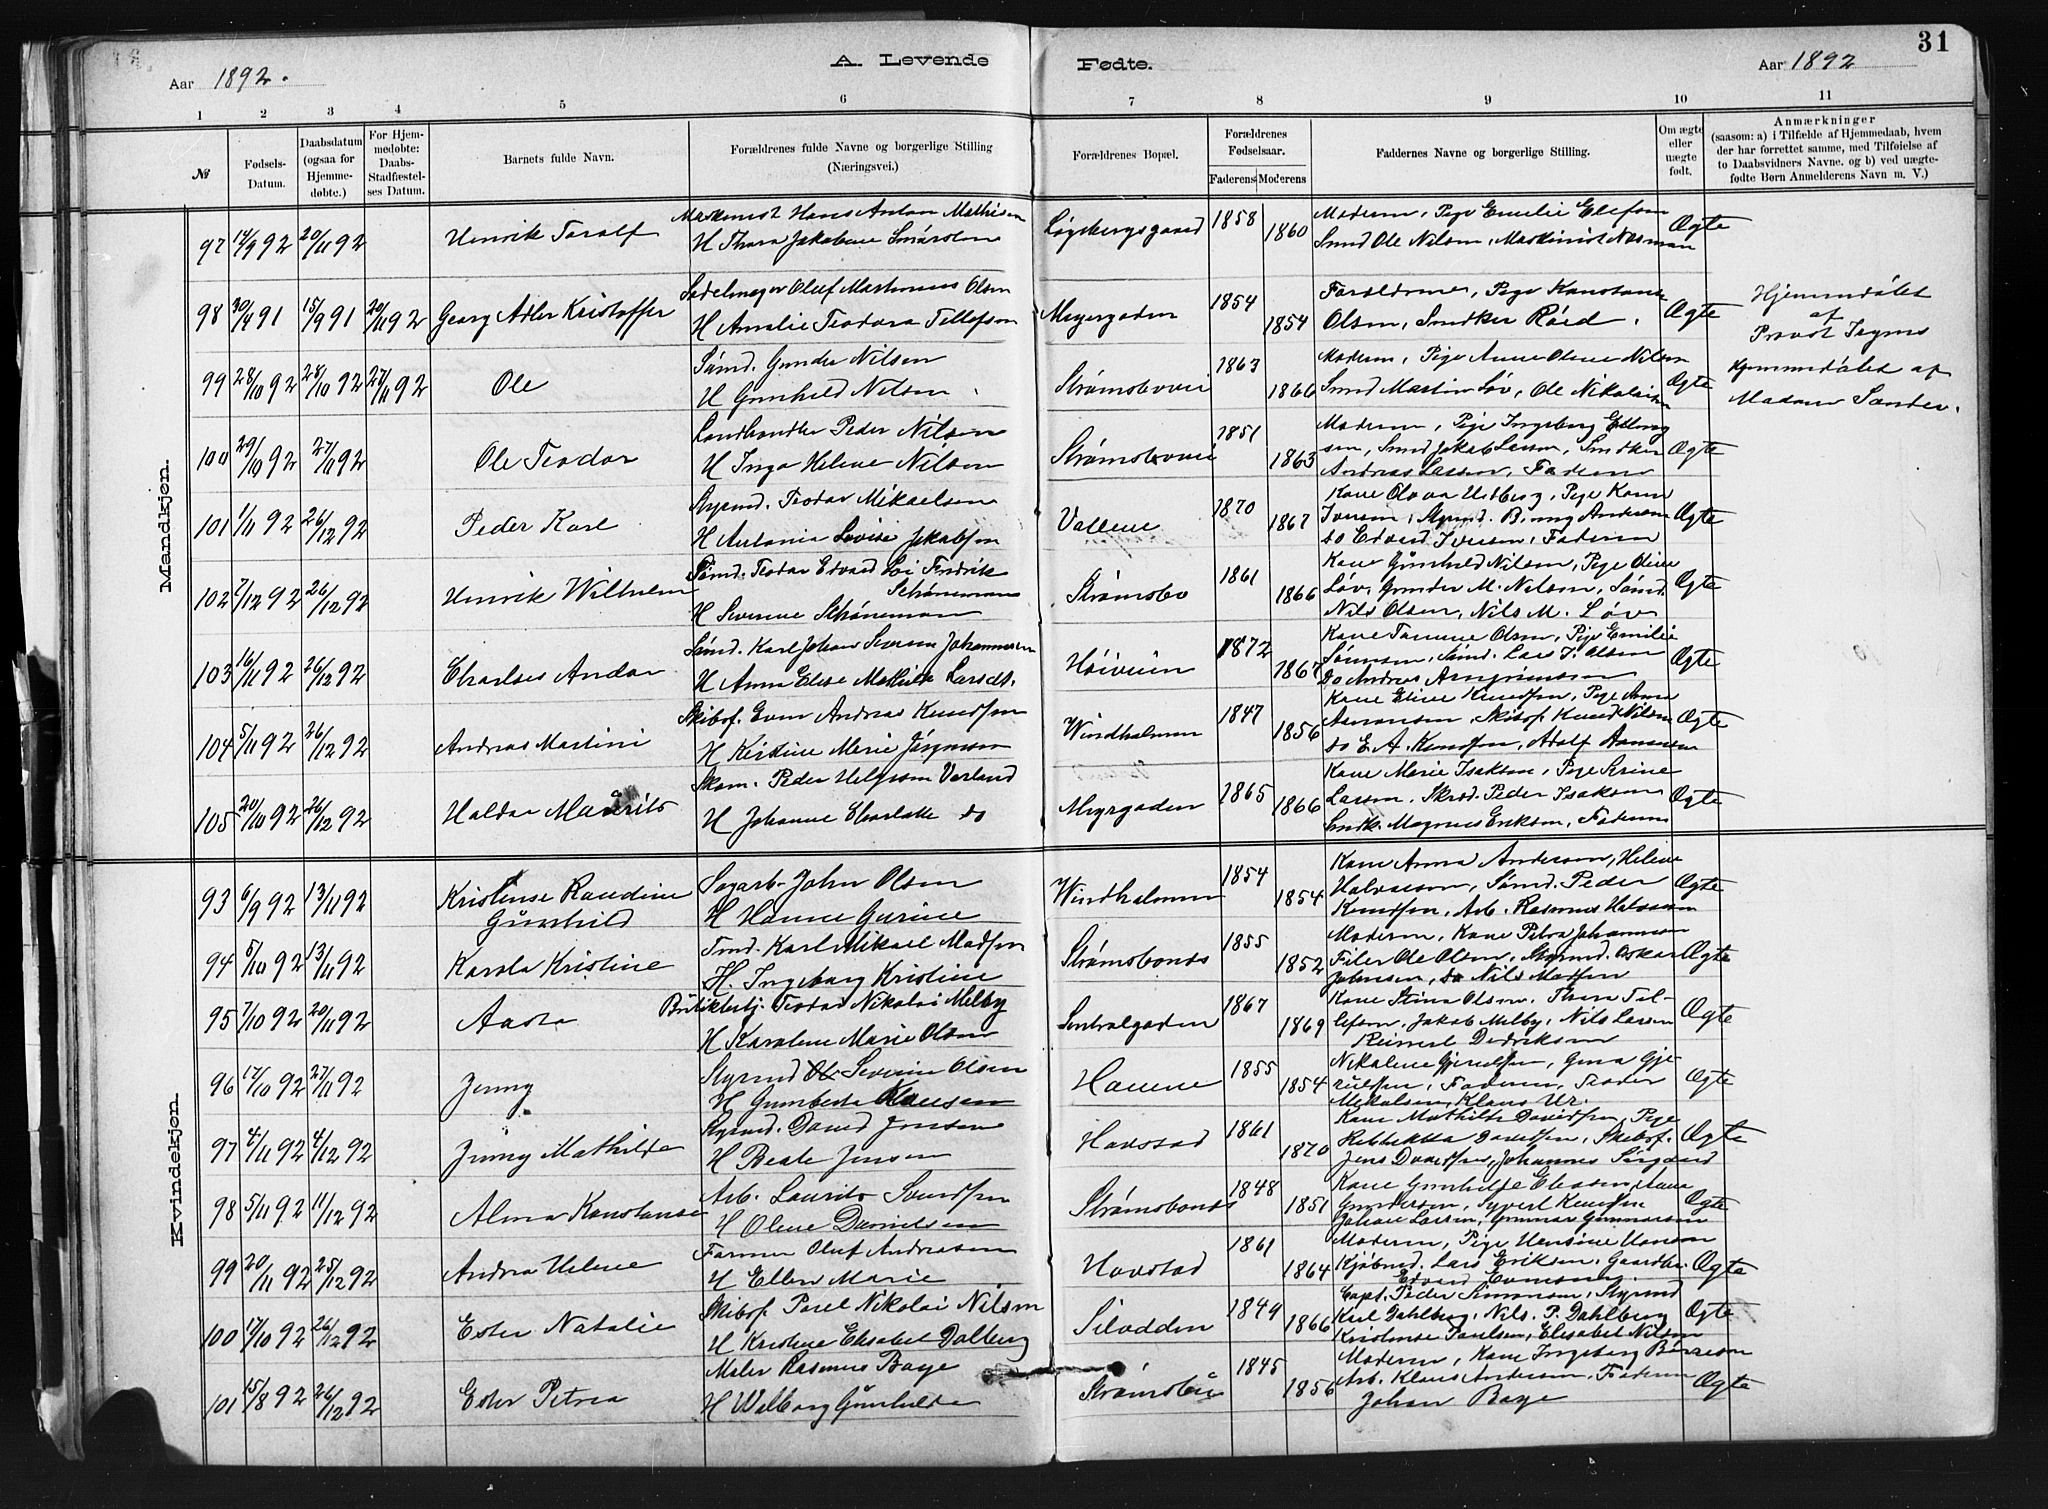 31
A. Levende Fødte.
Aar 1892.
Aar 1892
1 2 3 4 5 6 7 8 9 10 11
№
Fødsels-Datum.
Daabsdatum (ogsaa for Hjemme-døbte.)
For Hjem-medobte: Daabs-Stadfæstel-ses Datum.
Barnets fulde Navn.
Forældrenes fulde Navne og borgerlige Stilling (Næringsvei.)
Forældrenes Bopæl.
Forældrenes Fødselsaar.
Faderens Moderens
Faddernes Navne og borgerlige Stilling.
Om ægte eller uægte født.
Anmærkninger
(saasom: a) i Tilfælde af Hjemmedaab, hvem
der har forrettet samme, med Tilføielse af
to Daabsvidners Navne. og b) ved uægte-
fødte Børn Anmelderens Navn m. V.)
Mandkjøn.
97 14/9 92 20/11 92 Henrik Toralf
Maskinist Hans Anton Mathisen
H Thora Jakobine
1858 1860
Modern, Pige Emilie Elefsen
Smed Ole Nilsen, Maskinist
Ægte
98 30/4 91 15/9 91 20/11 92 Georg Adler Kristoffer
Sadelmager Oluf Martinius Olsen
H Amalie Teodora Tellefsen
Meyergaden 1854 1854
Forældrene, Pige Konstanse
Olsen, Snedker Röed.
Ægte
Hjemmedöbt
af
Provst
99 28/10 92 28/10 92 27/11 92 Ole
Sömd. Gunder Nilsen
H Gunhild Nilsen
Strømsboveie 1863 1866
Modern, Pige Anne Oline Nilsen
Smed Martin Löv, Ole Nikolaisen
Ægte
Hjemmedöbt af
Madam Sander.
100 29/10 92 27/11 92 Ole Teodor
Landhandler Peder Nilsen
H Inga Helene Nilsen
Strømsboveie 1851 1863
Modern, Pige Ingeborg Elling
sen, Smed Jakob Larsen, Snedker
Andreas Larsen, Faderen
Ægte
101 1/11 92 26/12 92 Peder Karl
Styrmd. Teodor Mikaelsen
H Antonia Lovise Jakobsen
Vallene 1870 1867
Kone Olava Udberg, Pige Karen
Iversen, Styrmd. Anderson
do Edvard Iversen, Faderen
Ægte
102 7/12 92 26/12 92 Henrik Wilhelm
Sömd. Teodor Edvard Fredrik
Schöneman
H Severine Schöneman
Strømsbo 1861 1866
Kone Gunhild Nilsen, Pige Oline
Löv, Gunder M. Nilsen, Sömd.
Nils Olsen, Nils M. Löv
Ægte
103 16/11 92 26/12 92 Charles Andor
Sömd. Karl Johan Severin Johannesen
H Anna Elise Mathilde Larsdt.
Höiveien 1872 1867
Kone Tomine Olsen, Pige Emilie
Sörensen, Sömd. Lars J. Olsen
Do Andreas
Ægte
104 5/11 92 26/12 92 Andreas Martini
Skibsf. Even Andreas Knudsen
H Kristine Marie Jörgensen
Windholmen 1847 1856
Kone Eline Knudsen, Pige Anna
Aanonsen, Skibsf. Knud Nilsen
do E. A. Knudsen, Adolf Aanonsen
Ægte
105 20/10 92 26/12 92 Haldor Mauritz
Skom. Peder Helgesen Verland
H Johanne Charlotte do
Meyrgaden 1865 1866
Kone Marie Isaksen, Pige Serine
Larsen, Skræd. Peder Isaksen
Snedk. Magnus Eriksen, Faderen
Ægte
Kvindekjøn.
93 6/9 92 13/11 92 Kristense Randine
Gunhild
Sagarb. John Olsen
H Hanne Gurine
Windholmen 1854 1854
Kone Anna Andersen, Heline
Halvorsen, Sömd. Peder
Knudsen, Arb. Rasmus Halvorsen
Ægte
94 5/10 92 13/11 92 Karola Kristine
Tmd. Karl Mikael Madsen
H. Ingeborg Kristine
Strømsbonds 1855 1852
Modern, Kone Petra Johannesen
Filer Ole Olsen, Styrmd. Oskar
Johnsen, do Nils Madsen
Ægte
95 7/10 92 20/11 92 Aasta
Teodor Nikolai Melby
H Karoline Marie Olsen
Sentralgaden 1867 1869
Kone Stina Olsen, Thora Tel-
lefsen, Jakob Melby, Nils Larsen
Reinert Didriksen
Ægte
96 17/10 92 27/11 92 Jenny
Styrmd Severin Olsen
H Gumberta Hansen
Havene 1855 1854
Nikoline Gjeruldsen, Gina Gje-
ruldsen, Faderen, Teodor
Mikalsen, Klaus Ur.
Ægte
97 4/11 92 4/12 92 Jenny Mathilde
Styrmd. David Jensen
H Beate Jensen
Havstad 1861 1870
Kone Mathilde Davidsen, Pige
Rebekka Davidsen, Skibsf.
Jens Davidsen, Johannes
Ægte
98 5/11 92 11/12 92 Alma Konstanse
Arb. Laurits Svendsen
H Oline Danielsen
Strømsbonds 1848 1851
Kone Gunhilde
Gundersen, Syvert Knudsen
Johan Larsen, Gunnar Gunnarsen
Ægte
99 20/11 92 25/12 92 Andrea Helene
Former Oluf Andreasen
H Ellen Marie
Havstad 1861 1864
Modern, Pige Hansen
Kjöbmd. Lars Eriksen, Gaardbr.
Edvard Evensen.
Ægte
100 17/10 92 26/12 92 Ester Natalie
Skibsf. Parel Nikolai Nilsen
H Kristine Elisabet Dalberg
Silodden 1849 1866
Capt. Peder Simonsen, Styrmd
Karl Dahlberg, Nils. P. Dahlberg
Kristense Paulsen, Elisabet Nilsen
Ægte
101 15/8 92 26/12 92 Ester Petrea
Maler Rasmus Boye
H Walborg Gunhilda
Strømsbu 1845 1856
Modern, Kone Ingeborg Börresen
Arb. Klaus Andersen, Faderen
Johan Boye
Ægte